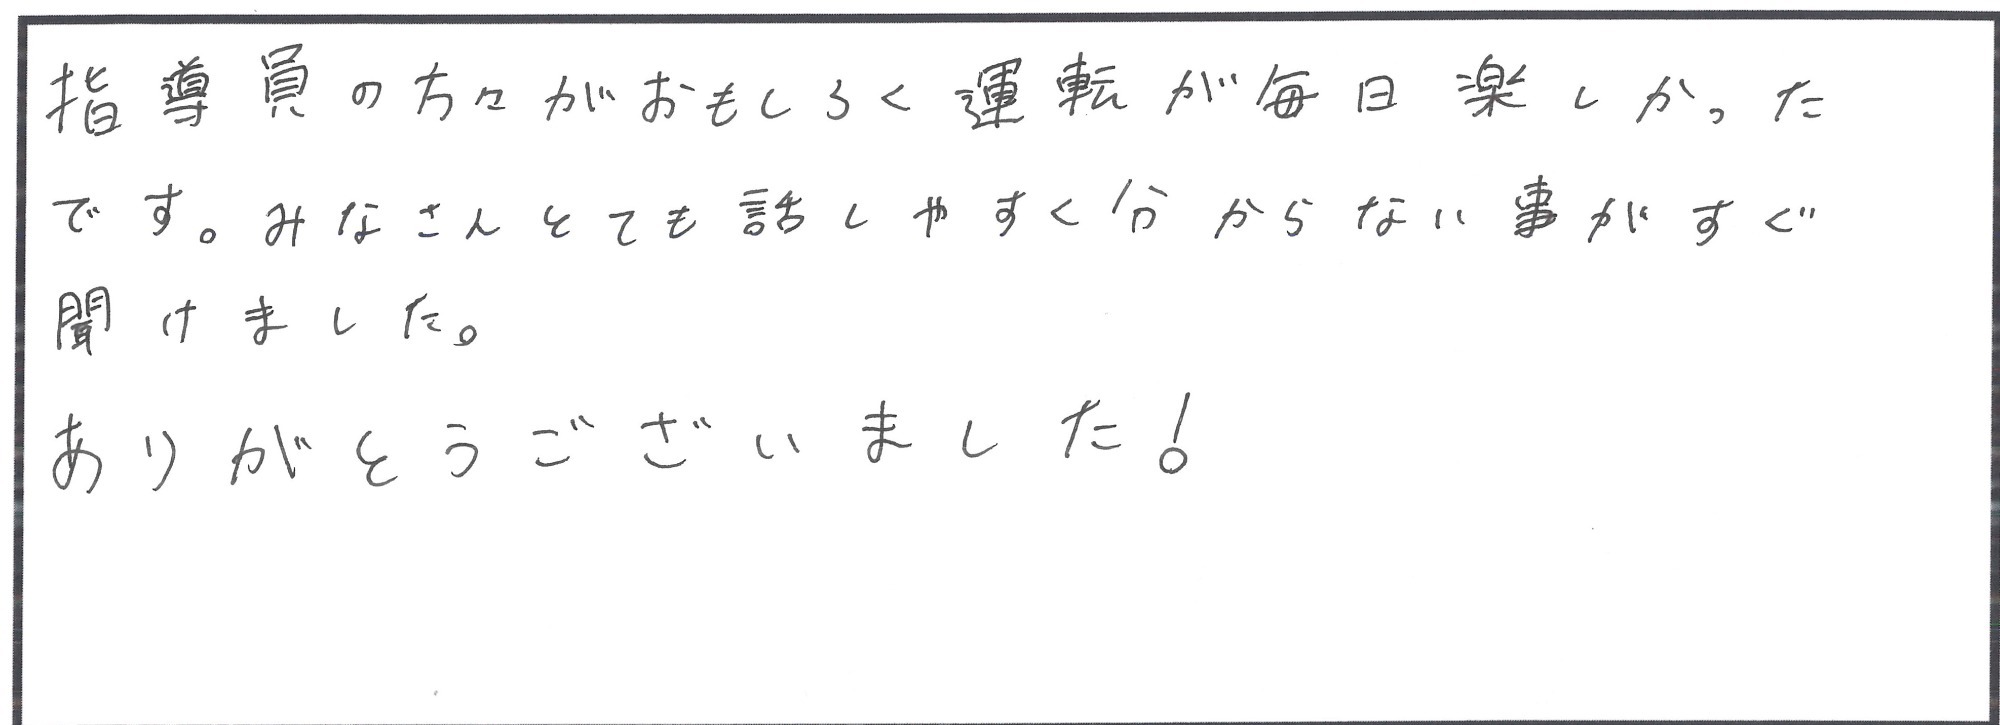 指導員の方々がおもしろく運転が毎日楽しかった
です。みなさんとても話しやすく分からない事がすぐ
聞けました。
ありがとうございました!